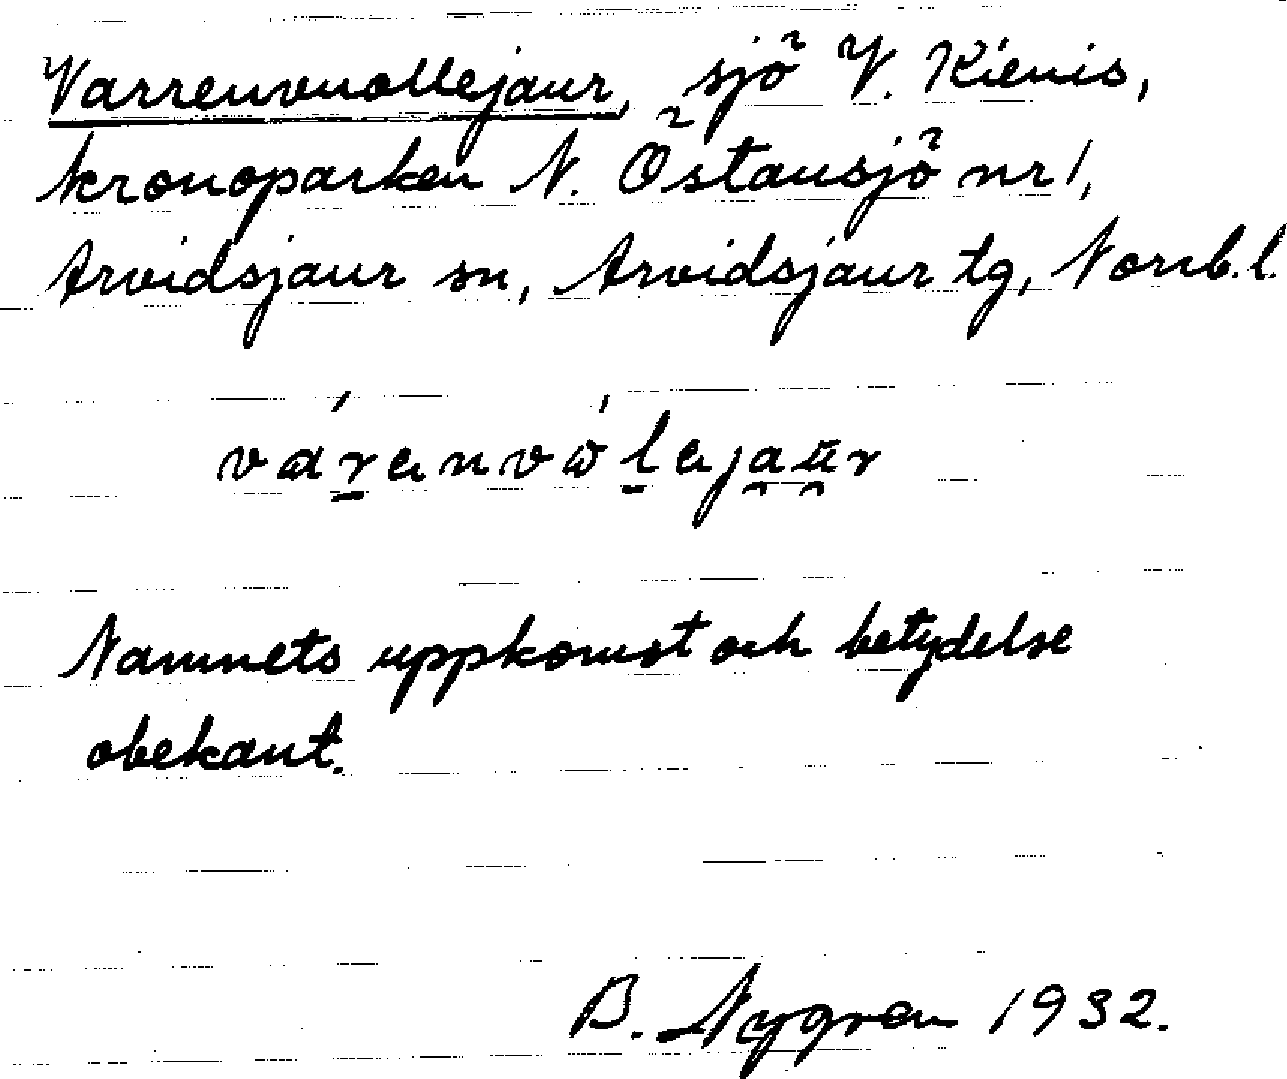 Varrenvuollejaur, sjö V. Kienis,
kronoparken N. Östansjö nr 1,
Arvidsjaur sn, Arvidsjaur tg, Norrb. l.
várenvålejaur
Namnets uppkomst och betydelse
obekant.
B. Nygren 1932.